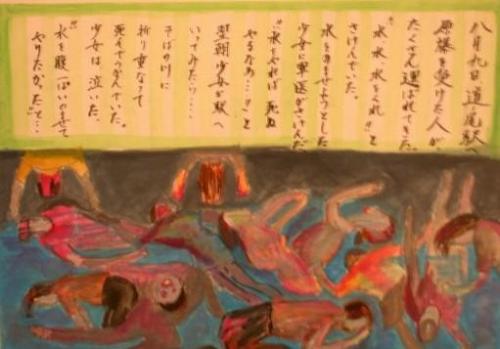 八月九日道尾駅へ
原爆を受けた人が、
たくさん運ばれてきた。
"水、水、水をくれ!!"と
さけんでいた。
水をのませようとした
少女に軍医がさけんだ
"水をやれば死ぬ
やるなあ…!"と
翌朝少女が駅へ
いってみたら…、
そばの川に
折り重なって
死んでうかんでいた。
少女は、泣いた。
"水を腹一ぱいのませて
やりたかった"と…